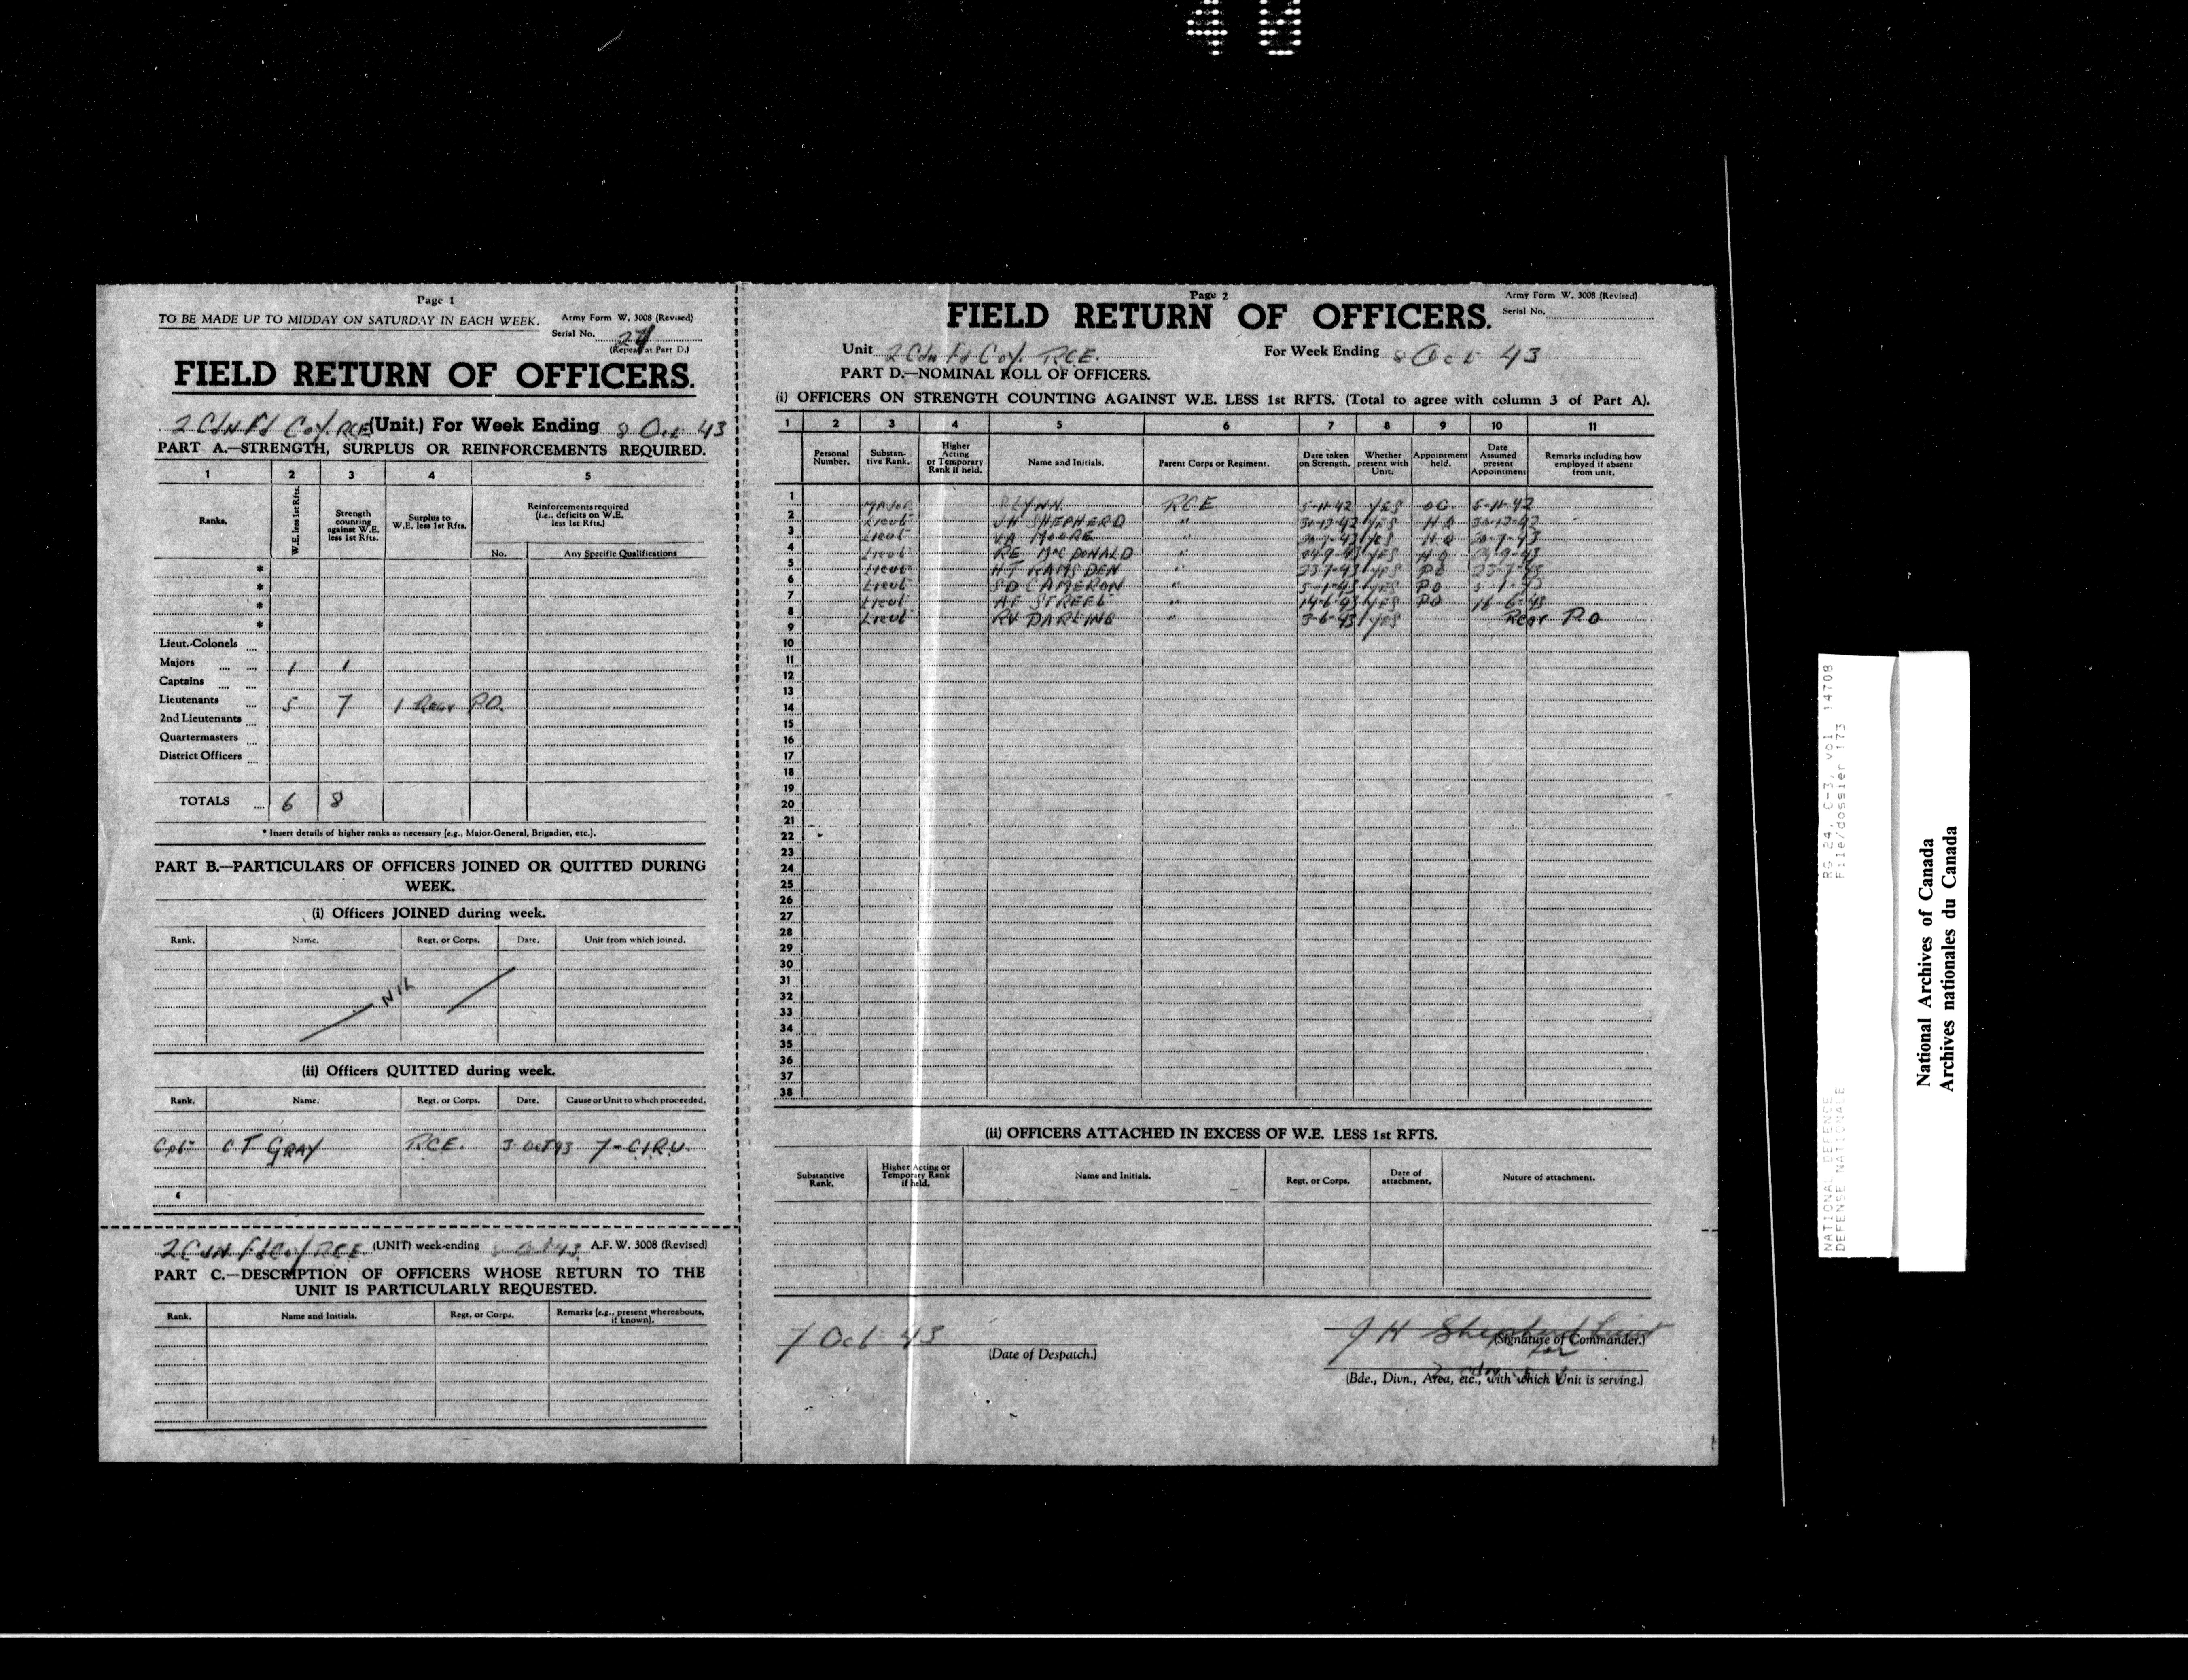 Page 1
TO BE MADE UP TO MIDDAY ON SATURDAY IN EACH WEEK.
Army Form W. 3008 (Revised)
Serial No.
(Repeat at Part D.)
FIELD RETURN OF OFFICERS.
2 Cdn Fd Coy. RCE (Unit.) For Week Ending 8 Oct 43
PART A.—STRENGTH, SURPLUS OR REINFORCEMENTS REQUIRED.
1 2 3 4 5
Ranks.
W.E. less 1st Rfts.
Strength counting against W.E. less 1st Rfts.
Surplus to W.E. less 1st Rfts.
Reinforcements required (i.e., deficits on W.E. less 1st Rfts.)
No. Any Specific Qualifications
*
*
*
*
Lieut.-Colonels
Majors 1 1
Captains
Lieutenants 5 7 1 Rear P.O.
2nd Lieutenants
Quartermasters
District Officers
TOTALS 6 8
* Insert details of higher ranks as necessary (e.g., Major-General, Brigadier, etc.).
PART B.—PARTICULARS OF OFFICERS JOINED OR QUITTED DURING
WEEK.
(i) Officers JOINED during week.
Rank. Name. Regt. or Corps. Date. Unit from which joined.
NIL
(ii) Officers QUITTED during week.
Rank. Name. Regt. or Corps. Date. Cause or Unit to which proceeded.
Cpt CT GRAY RCE. 3 Oct 43 7-C.I.R.U.
2 Cdn Fd Coy RCE (UNIT) week-ending A.F.W. 3008 (Revised)
PART C.—DESCRIPTION OF OFFICERS WHOSE RETURN TO THE
UNIT IS PARTICULARLY REQUESTED.
Rank. Name and Initials. Regt. or Corps. Remarks (e.g., present whereabouts, if known).
Page 2
Army Form W. 3008 (Revised)
FIELD RETURN OF OFFICERS.
Serial No.
Unit 2 Cdn Fd Coy. RCE. For Week Ending 8 Oct 43
PART D.—NOMINAL ROLL OF OFFICERS.
(i) OFFICERS ON STRENGTH COUNTING AGAINST W.E. LESS 1st RFTS. (Total to agree with column 3 of Part A).
1 2 3 4 5 6 7 8 9 10 11
Personal Number.
Substantive Rank.
Higher Acting or Temporary Rank if held.
Name and Initials.
Parent Corps or Regiment.
Date taken on Strength.
Whether present with Unit.
Appointment held.
Date Assumed present Appointment
Remarks including how employed if absent from unit.
1 Major RCE 5-11-42 YES OC. 5-11-42
2 Lieut JH SHEPHERD " 30-12-42 YES HQ 30-12-42
3 Lieut VA MOORE " YES HQ
4 Lieut RE MacDONALD " YES HQ
5 Lieut HT RAMSDEN " 23-7-43 YES PO 23-7-43
6 Lieut SD CAMERON " 5-1-43 YES PO 5-1-43
7 Lieut " 14-6-43 YES PO
8 Lieut RV DARLING " 3-6-43 YES Rear P.O
9
10
11
12
13
14
15
16
17
18
19
20
21
22
23
24
25
26
27
28
29
30
31
32
33
34
35
36
37
38
(ii) OFFICERS ATTACHED IN EXCESS OF W.E. LESS 1st RFTS.
Substantive Rank.
Higher Acting or Temporary Rank if held.
Name and Initials.
Regt. or Corps.
Date of attachment.
Nature of attachment.
7 Oct 43
(Date of Despatch.)
J H Shepherd Lieut
(Signature of Commander.)
for
(Bde., Divn., Area, etc., with which Unit is serving.)
RG 24, C-3, vol 14708
File/dossier 173
NATIONAL DEFENCE
DEFENSE NATIONALE
National Archives of Canada
Archives nationales du Canada